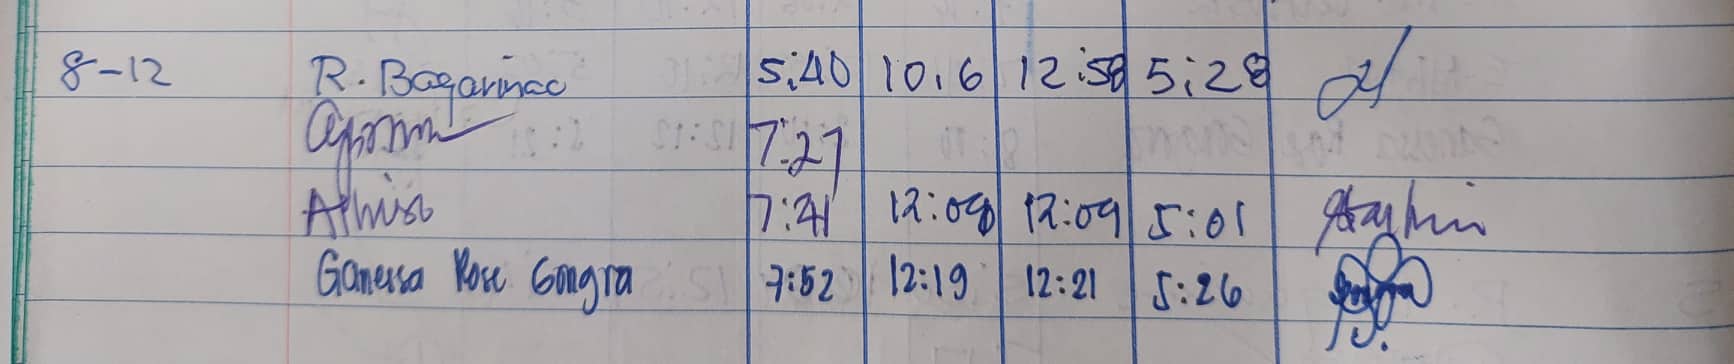 8-12 R. Bagarinao 5:40 10:6 12:58 5:28
7:27
7:41 12:08 12:09 5:01
Ganessa Rose Gongra 7:52 12:19 12:21 5:26